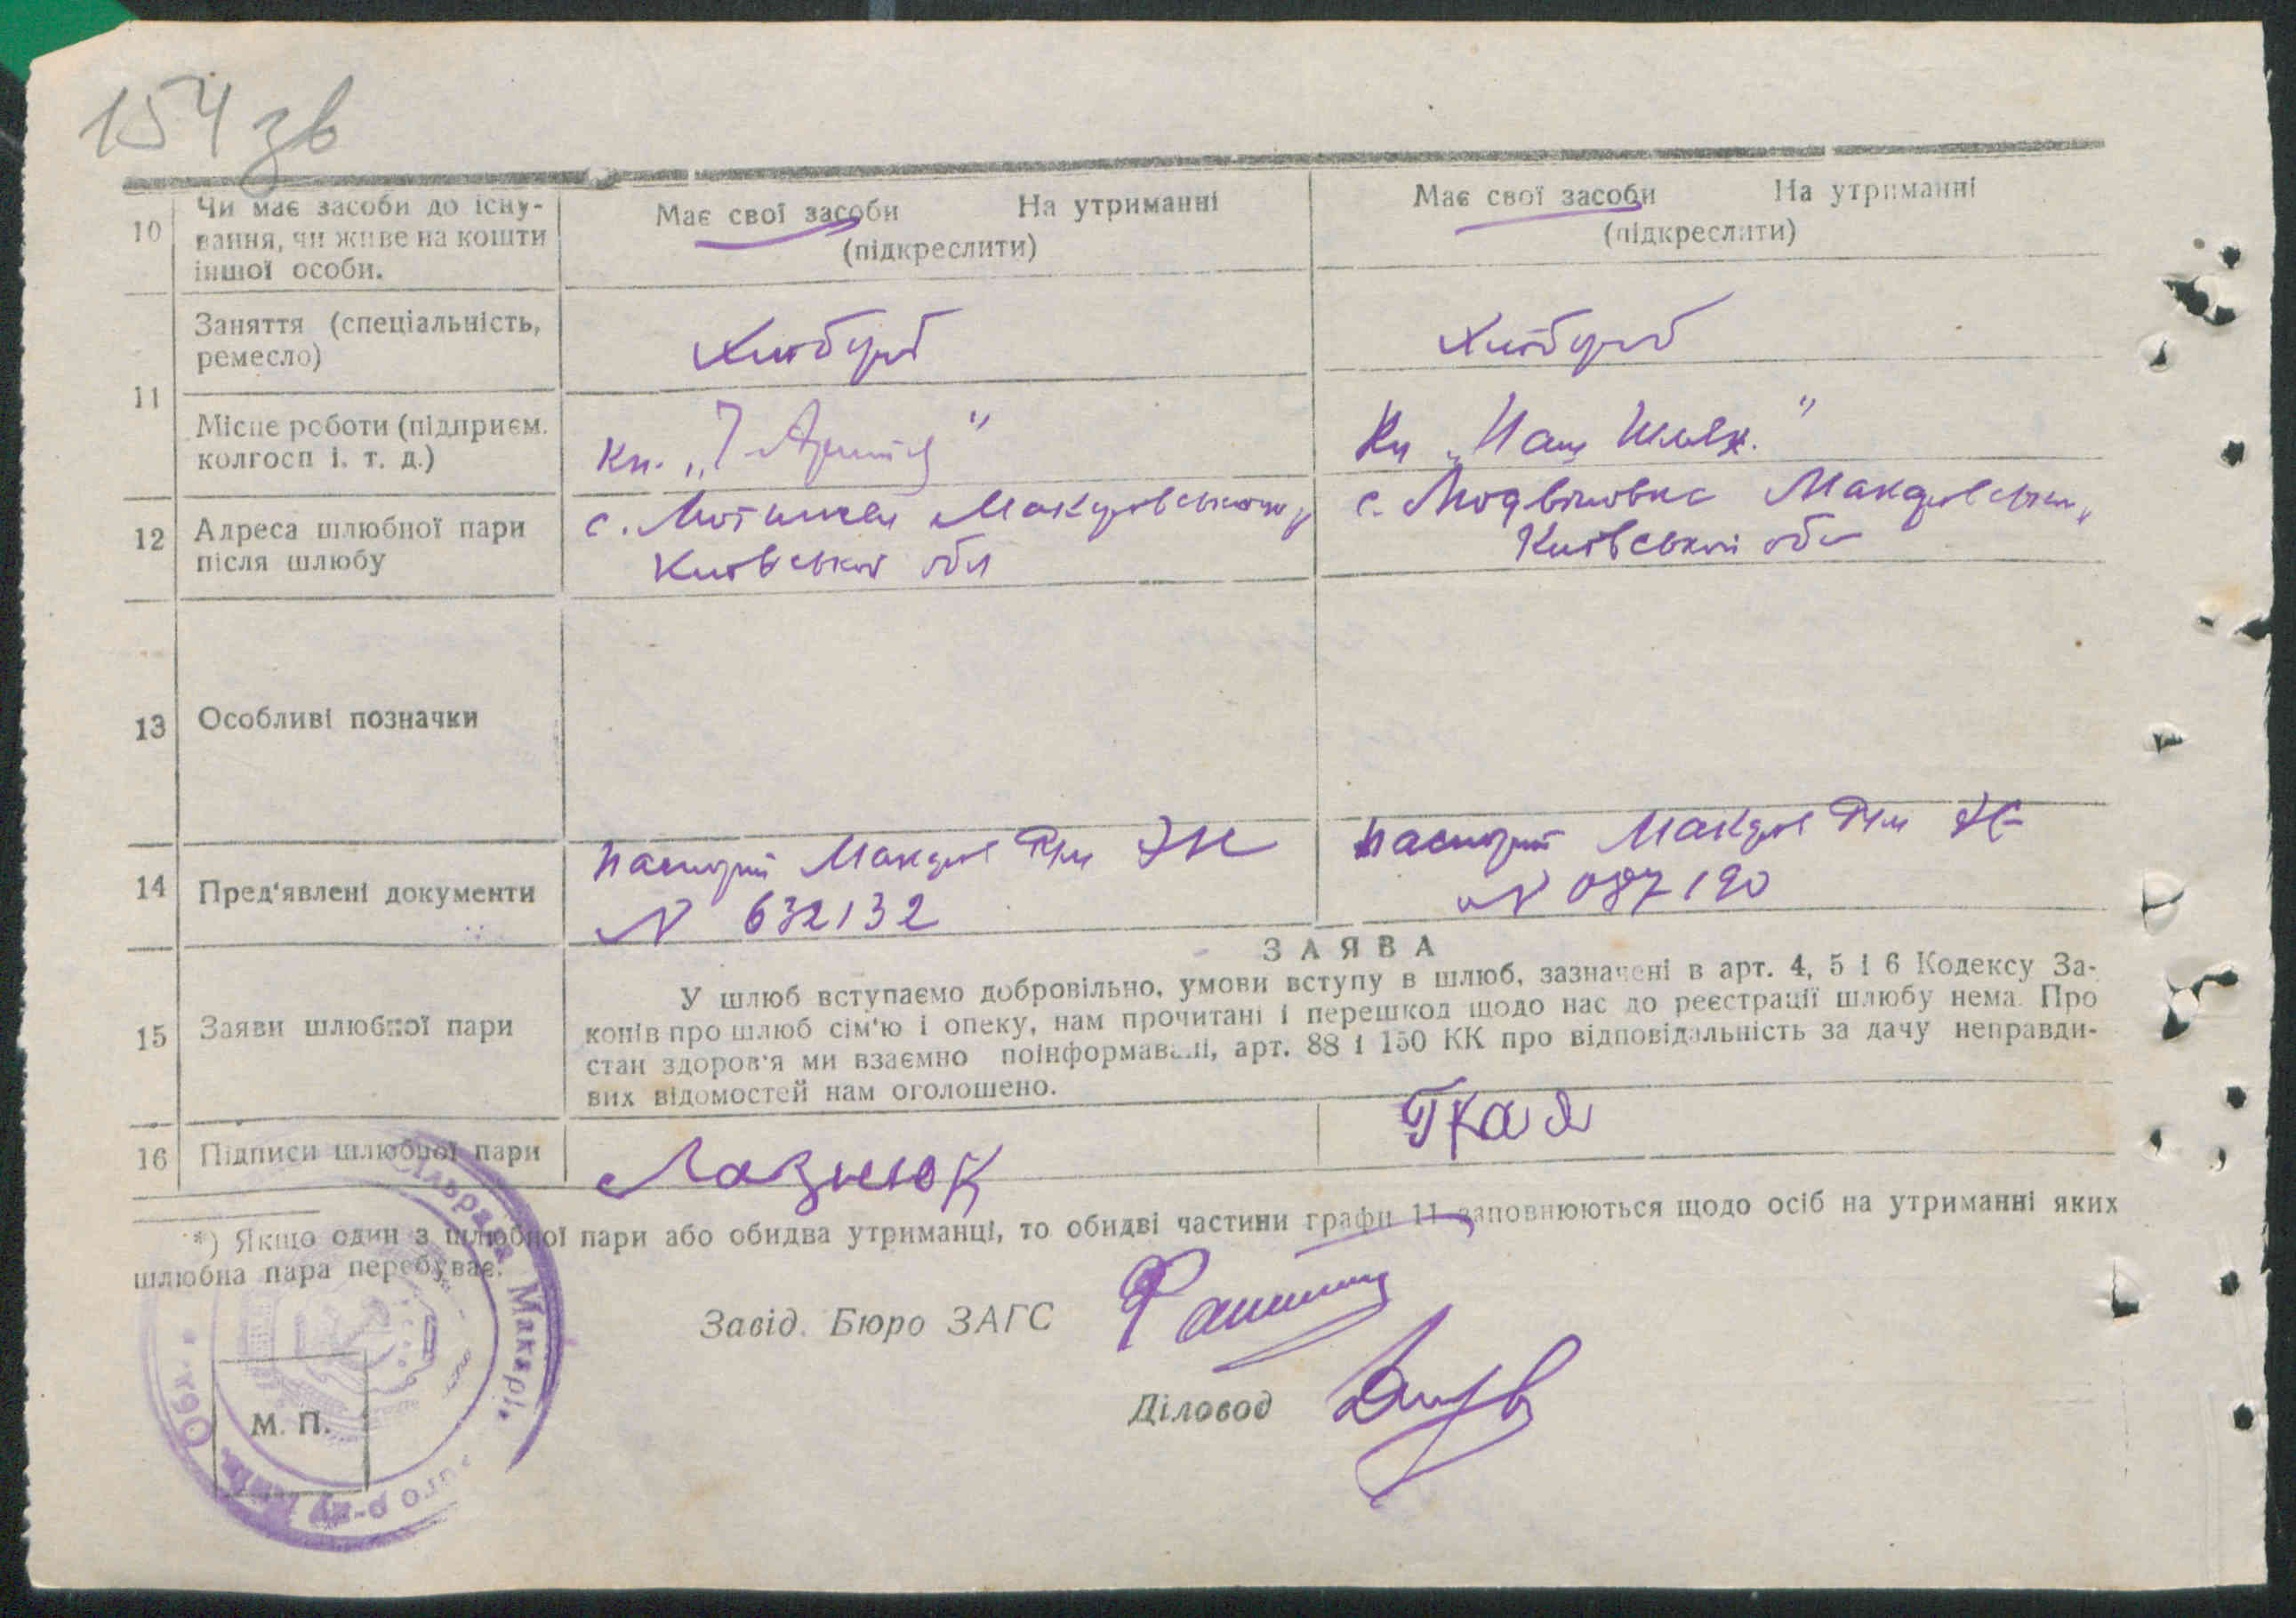 154 зв
10 Чи має засоби до існу-
вання, чи живе на кошти
іншої особи.
Має свої засоби На утриманні
(підкреслити)
Має свої засоби На утриманні
(підкреслити)
11 Заняття (спеціальність,
ремесло)
Хлібороб
Хлібороб
Місце роботи (підприєм.
колгосп і. т. д.)
Кп. „7
Кп „Наш Шлях."
12 Адреса шлюбної пари
після шлюбу
с. Мотижин Макарівського
Київської обл
с. Людвинівка Макарівськ
Київської обл
13 Особливі позначки
14 Пред'явлені документи
паспорт Макарів
N 632132
паспорт Макарів
N 087190
15 Заяви шлюбної пари
ЗАЯВА
У шлюб вступаємо добровільно, умови вступу в шлюб, зазначені в арт. 4, 5 і 6 Кодексу За-
конів про шлюб сім'ю і опеку, нам прочитані і перешкод щодо нас до реєстрації шлюбу нема. Про
стан здоров'я ми взаємно поінформавані, арт. 88 і 150 КК про відповідальність за дачу неправди-
вих відомостей нам оголошено.
16 Підписи шлюбної пари
Лазнюк
*) Якщо один з шлюбної пари або обидва утриманці, то обидві частини графи 11 заповнюються щодо осіб на утриманні яких
шлюбна пара перебуває.
Завід. Бюро ЗАГС
Діловод
М. П.
сільрада Макарі
ого р-ну Київ. Обл.